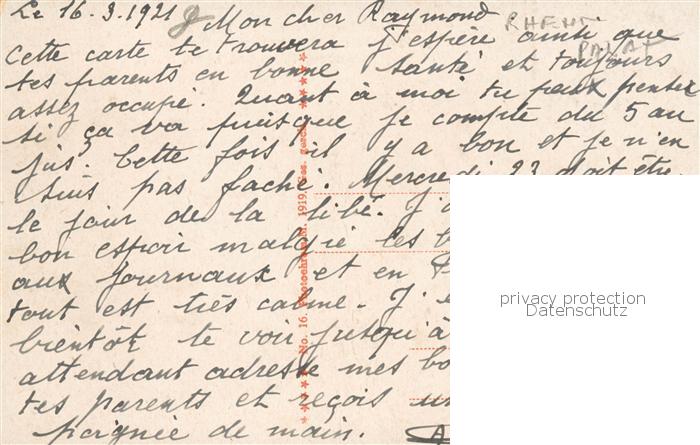 Le 16.3.1921 Mon cher Raymond
RHEN
PALAT
Cette carte te trouvera j'espère ainsi que
tes parents en bonne santé et toujours
assez occupé. Quant à moi tu peux penser
si ça va puisque je compte du 5 au
jus. Cette fois il y a bon et je n'en
suis pas faché. Mercredi 23 doit être
le jour de la libé. J'
bon espoir malgré les b
aux journaux et en
tout est très calme. J'e
bientôt te voir jusqu'à
attendant adresse mes bo
tes parents et reçois un
poignée de main.
No. 16. Photochromie. 1919. Ges. gesch.
privacy protection
Datenschutz